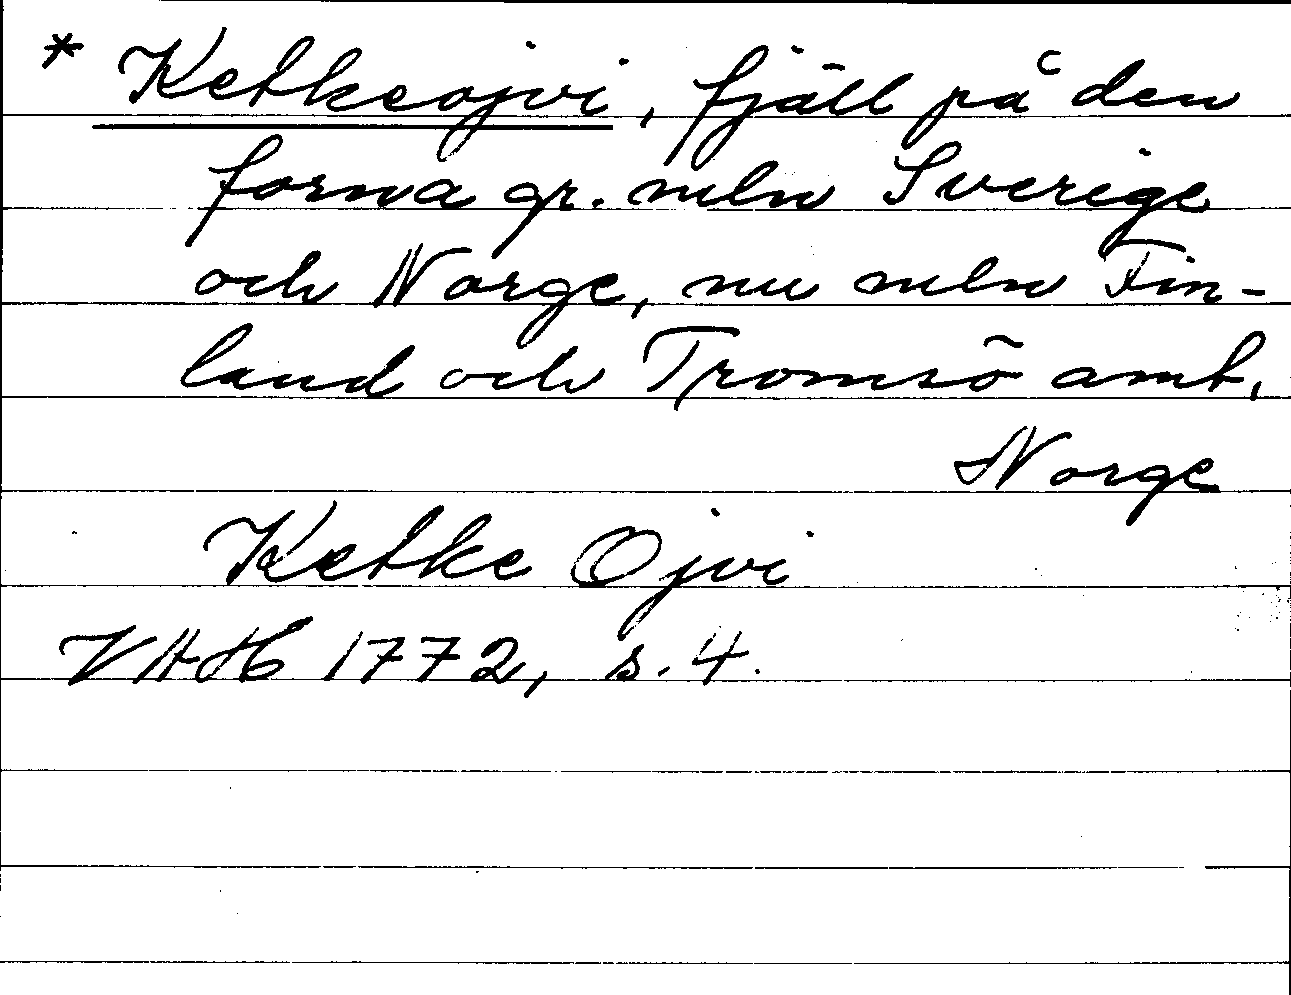 * Ketkeojvi, fjäll på den
forna gr. mln Sverige
och Norge, nu mln Fin-
land och Tromsö amt,
Norge
Ketke Ojvi
VAH 1772, s. 4.